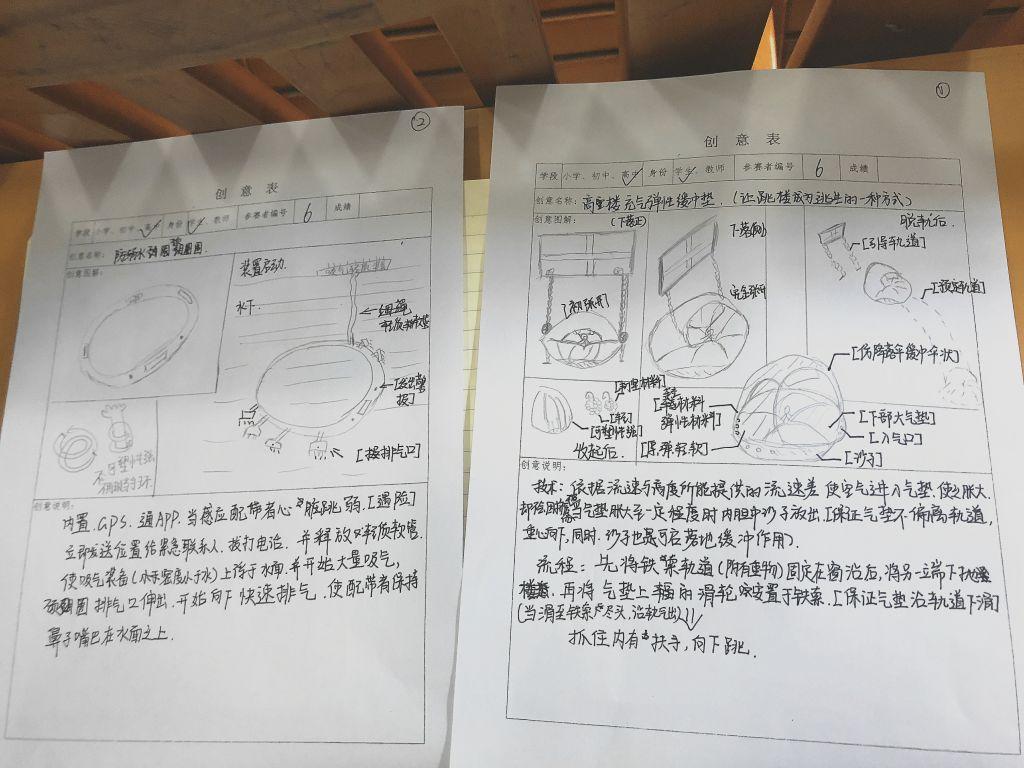 ②
创意表
学段 小学、初中、高中 身份 学生、教师 参赛者编号 6 成绩
创意名称: 防溺水
创意图解:
装置启动
水下
[操排气口]
创意说明:
内置.GPS.通APP.当感应配带者心脏跳弱.[遇险]
立即发送位置给紧急联系人.拨打电话.并释放轻质软管.
使吸气装备(小于密度小于水)上浮于水面.并开始大量吸气,
颈圈排气口伸出.开始向下快速排气.使配带者保持
鼻子嘴巴在水面之上.
①
创意表
学段 小学、初中、高中 身份 学生、教师 参赛者编号 6 成绩
创意名称: 高楼充气弹性缓冲垫.(让跳楼成为逃生的一种方式)
创意图解:
(下落正)
下落侧
脱轨后.
[引导轨道]
[预定轨道]
[初张开]
完全张开
[仿降落伞缓冲伞状]
弹性材料]
[下部大气垫]
[入气口]
[沙子]
收起后.
创意说明:
技术:依据流速与高度所能提供的流速差使空气进入气垫.使之胀大.
当气垫胀大至一定程度时内胆中沙子放出.[保证气垫不偏离轨道,
重心向下,同时.沙子也是可启落地缓冲作用).
流程:先将铁索轨道(附有重物)固定在窗沿后,将另一端下抛
再将气垫上辐的滑轮安置于铁索.[保证气垫沿轨道下滑]
(当滑至铁索尽头,沿轨气出)
抓住内有扶手,向下跳.